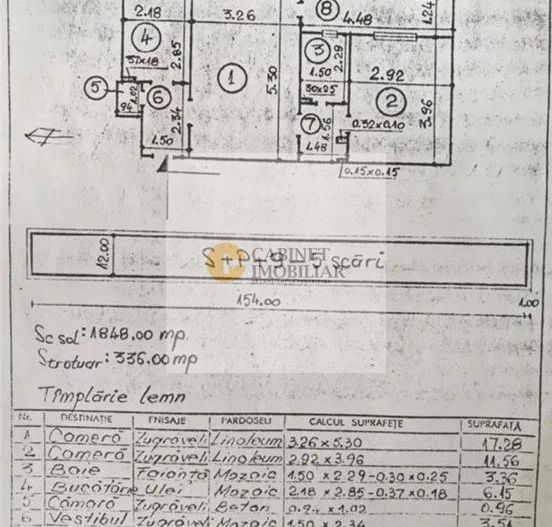 8
2.18
3.26
4.48
1.24
4
2.85
3
2.29
1
5.30
37x18
1.50
2.92
5
1.02
6
30x25
2
.94
2.34
7
1.56
0.32x0.10
3.96
1.50
1.48
0.15x0.15
12.00
S+P+9-5 scări
CABINET
IMOBILIAR
154.00
1.00
Sc sol: 1848.00 mp
Strotuar: 336.00 mp
Timplărie lemn
Nr. DESTINAȚIE FINISAJE PARDOSELI CALCUL SUPRAFEȚE SUPRAFAȚA
1 Cameră Zugrăveli Linoleum 3.26 x 5.30 17.28
2 Cameră Zugrăveli Linoleum 2.92 x 3.96 11.56
3 Baie Faianță Mozaic 1.50 x 2.29-0.30 x 0.25 3.36
4 Bucătărie Ulei Mozaic 2.18 x 2.85-0.37 x 0.18 6.15
5 Cămară Zugrăveli Beton 0.94 x 1.02 0.96
6 Vestibul Zugrăveli Mozaic 1.50 x 2.34